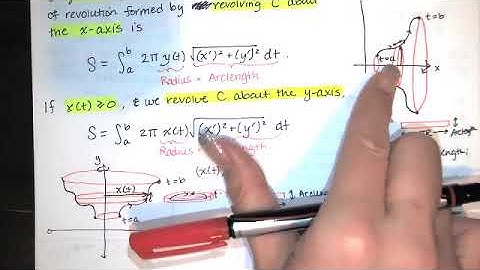 of revolution formed by revolving C about
the x-axis is
S = ∫ₐᵇ 2π y(t) √(x')² + (y')² dt .
Radius • Arclength
If x(t) ≥ 0, & we revolve C about the y-axis,
S = ∫ₐᵇ 2π x(t) √(x')² + (y')² dt
Radius
length
t=b
t=a
x
y
x(t)
t=b
t=a
(x(t)
Arclength
length